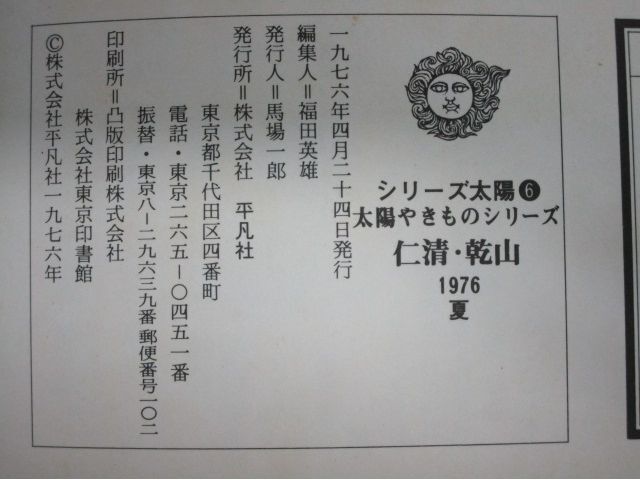 シリーズ太陽❻
太陽やきものシリーズ
仁清・乾山
1976
夏
一九七六年四月二十四日発行
編集人＝福田英雄
発行人＝馬場一郎
発行所＝株式会社 平凡社
東京都千代田区四番町
電話・東京二六五―〇四五一番
振替・東京八―二九六三九番 郵便番号一〇二
印刷所＝凸版印刷株式会社
株式会社東京印書館
©株式会社平凡社一九七六年